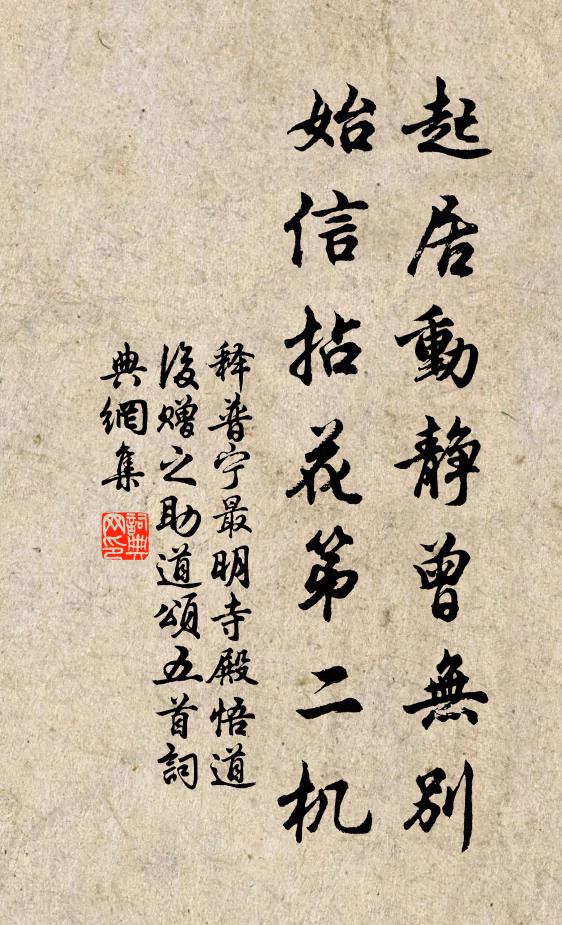 起居動靜曾無別
始信拈花第二机
释普宁最明寺殿悟道
後赠之助道頌五首詞
典網集
詞典网印